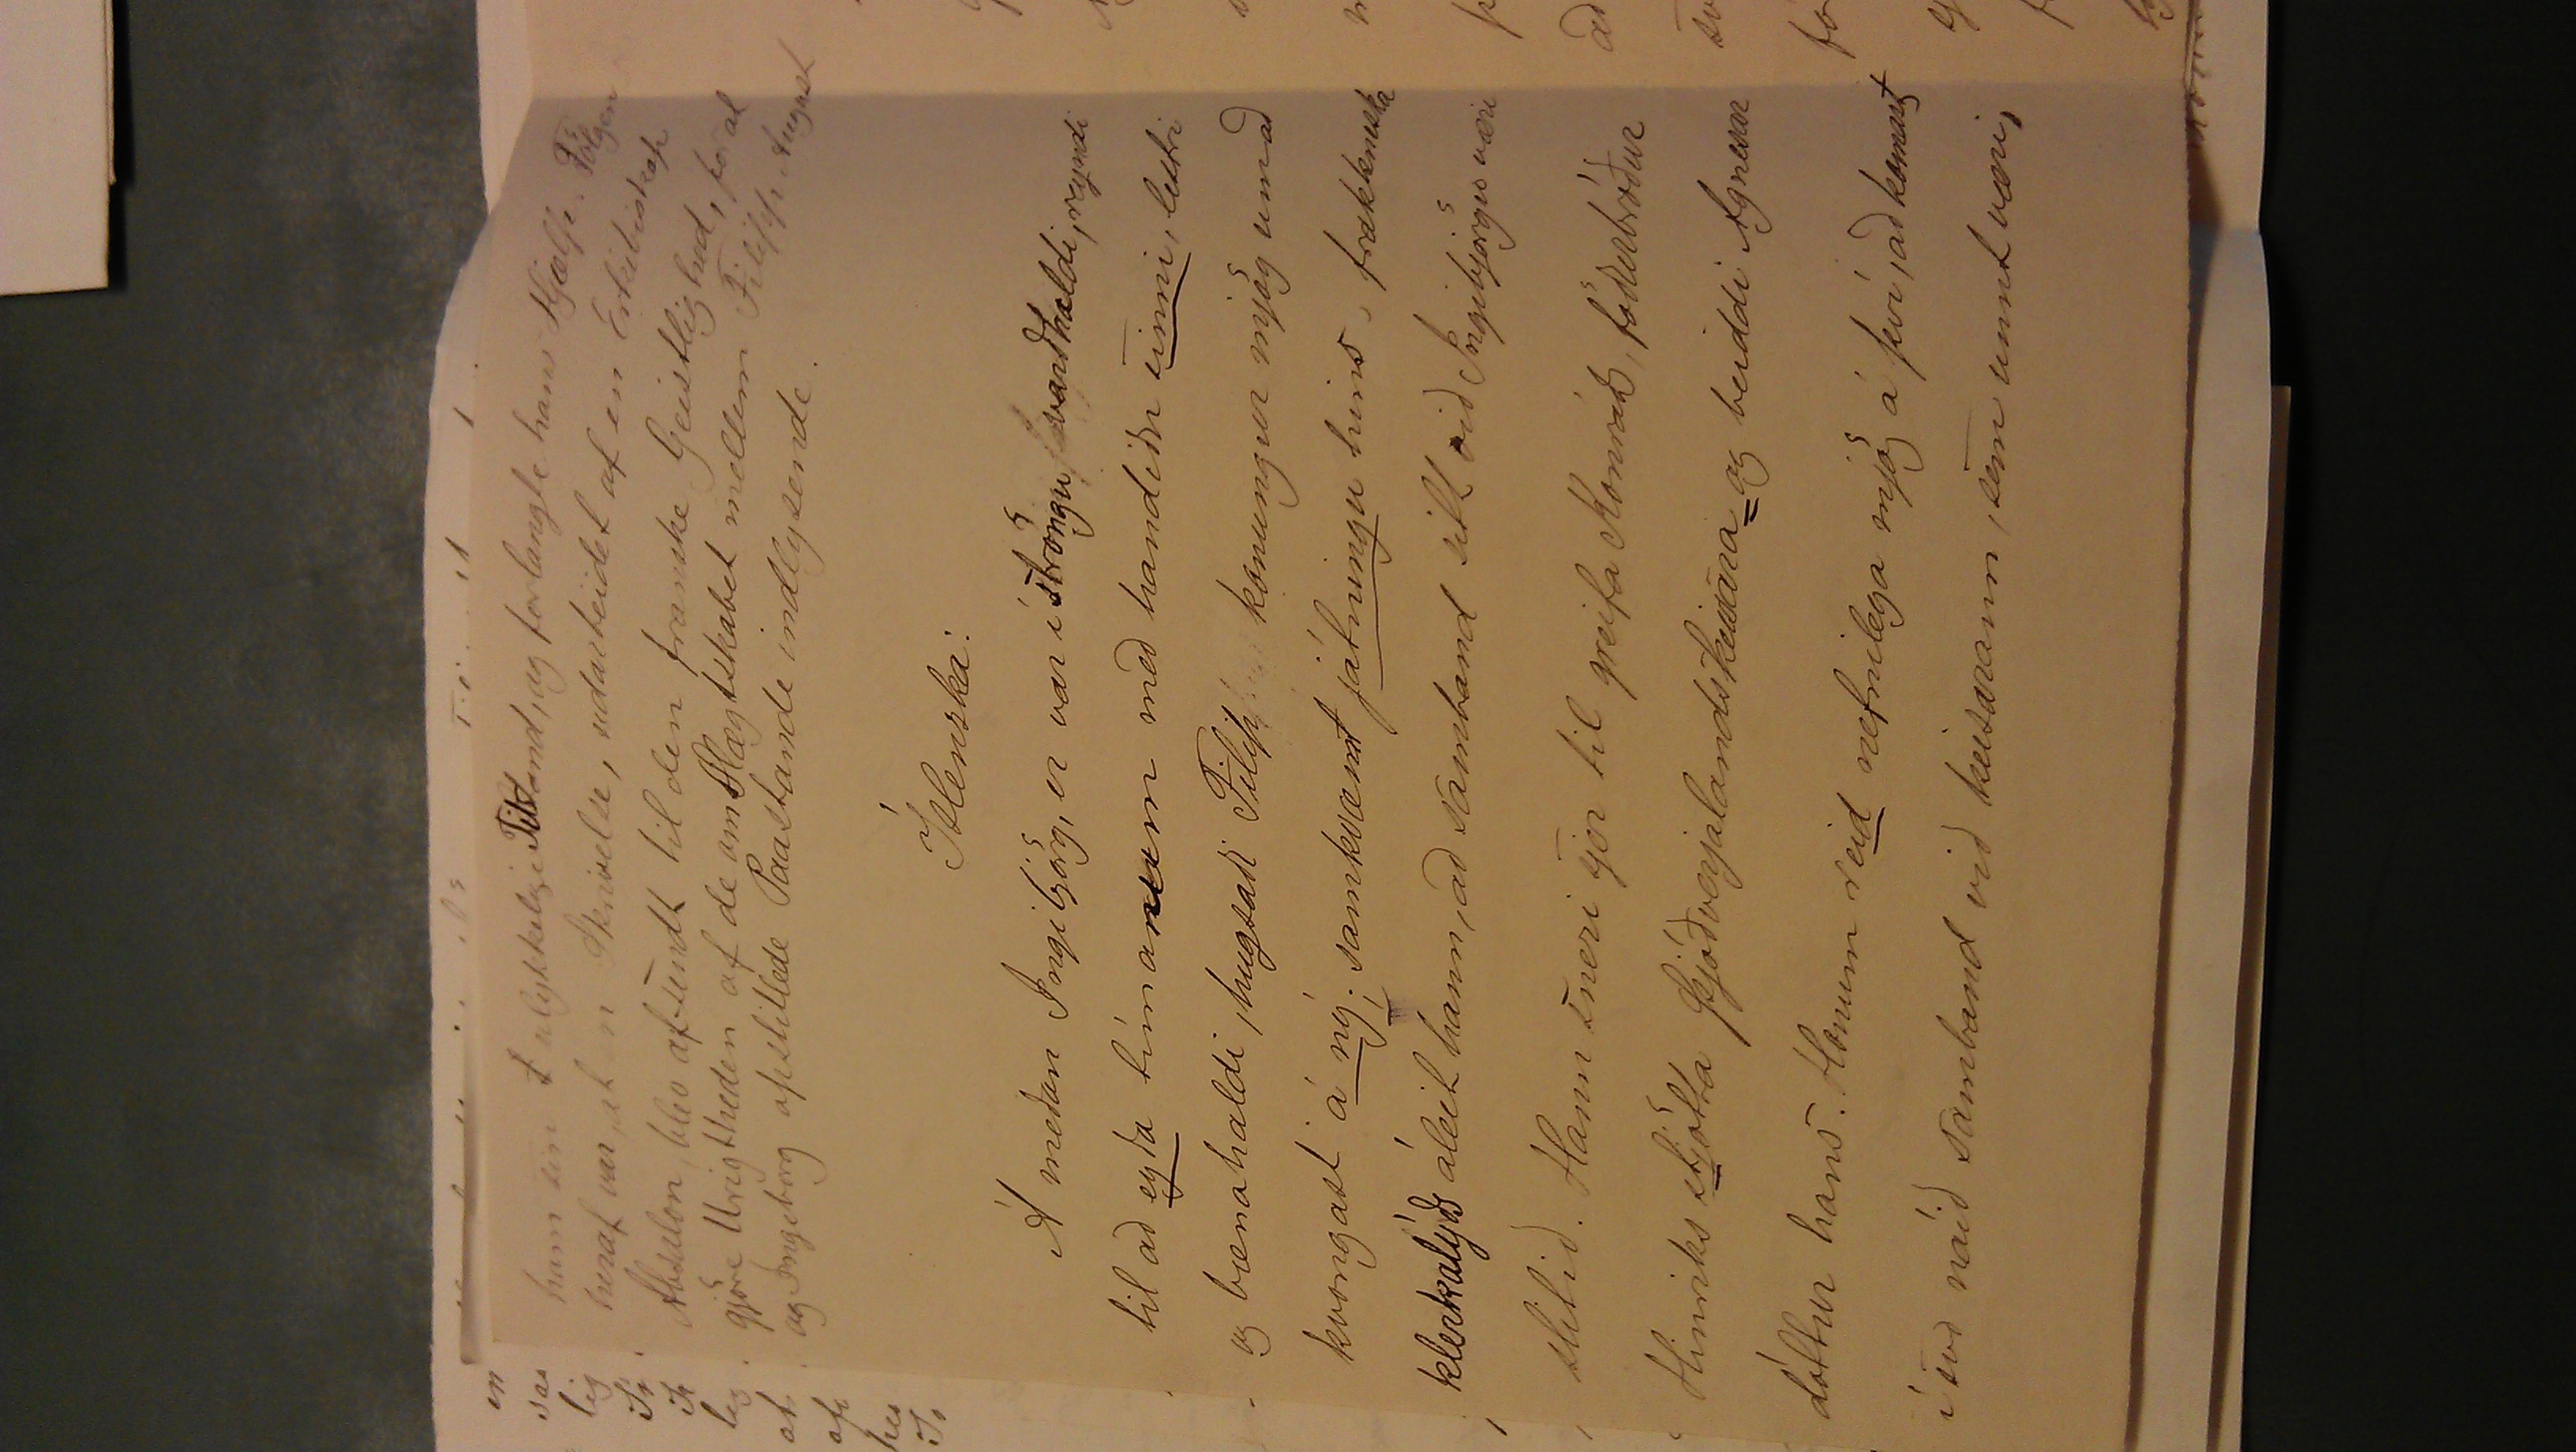 ham sin ulykkelige Tilstand, og forlangte hans Hjælp. Følgen
heraf var, at en Skrivelse, udarbeidet af en Erkibiskop
Absalon, blev afsendt til den franske Geistlighed, for at
gjöre Urigtheden af de om Slægtskabet mellem Filipp August
og Ingeborg opstillede Paastande indlysende.
Íslenska:
Á meðan Ingibjörg, er var í ströngu varðhaldi, reyndi
til að eyða tímanum með handiðn sinni, lestri
og bænahaldi, hugsaði Filipp konungur mjög um að
kvongast á ný; samkvæmt játningu hins frakkneska
klerkalýðs áleit hann, að samband sitt við Ingibjörgu væri
slitið. Hann sneri sjer til greifa Konráðs, föðurbróður
Hinriks sjötta Þjóðverjalandskeisara og beiddi Agnesar
dóttur hans. Honum reið nefnilega mjög á því, að komast
í svo náið samband við keisarann, sem unnt væri,